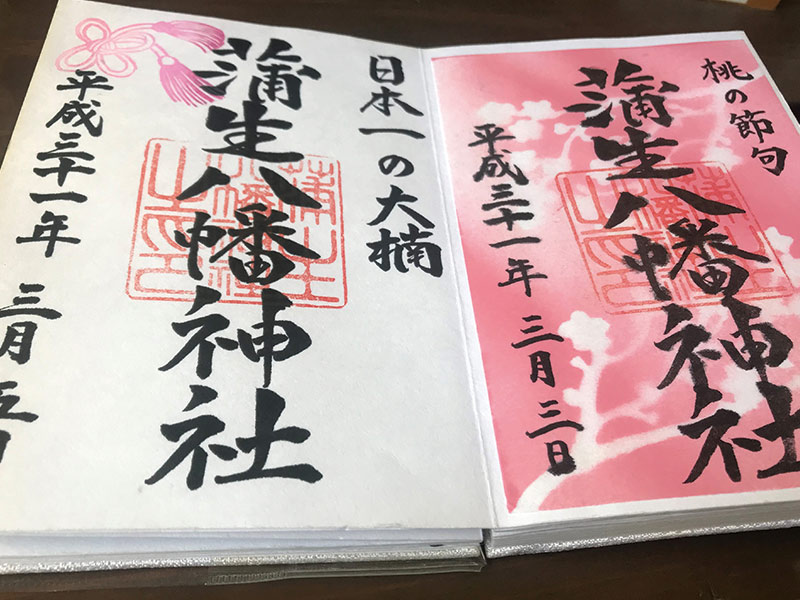 桃の節句
蒲生八幡神社
平成三十一年 三月 三日
日本一の大楠
蒲生八幡神社
平成三十一年 三月 五日